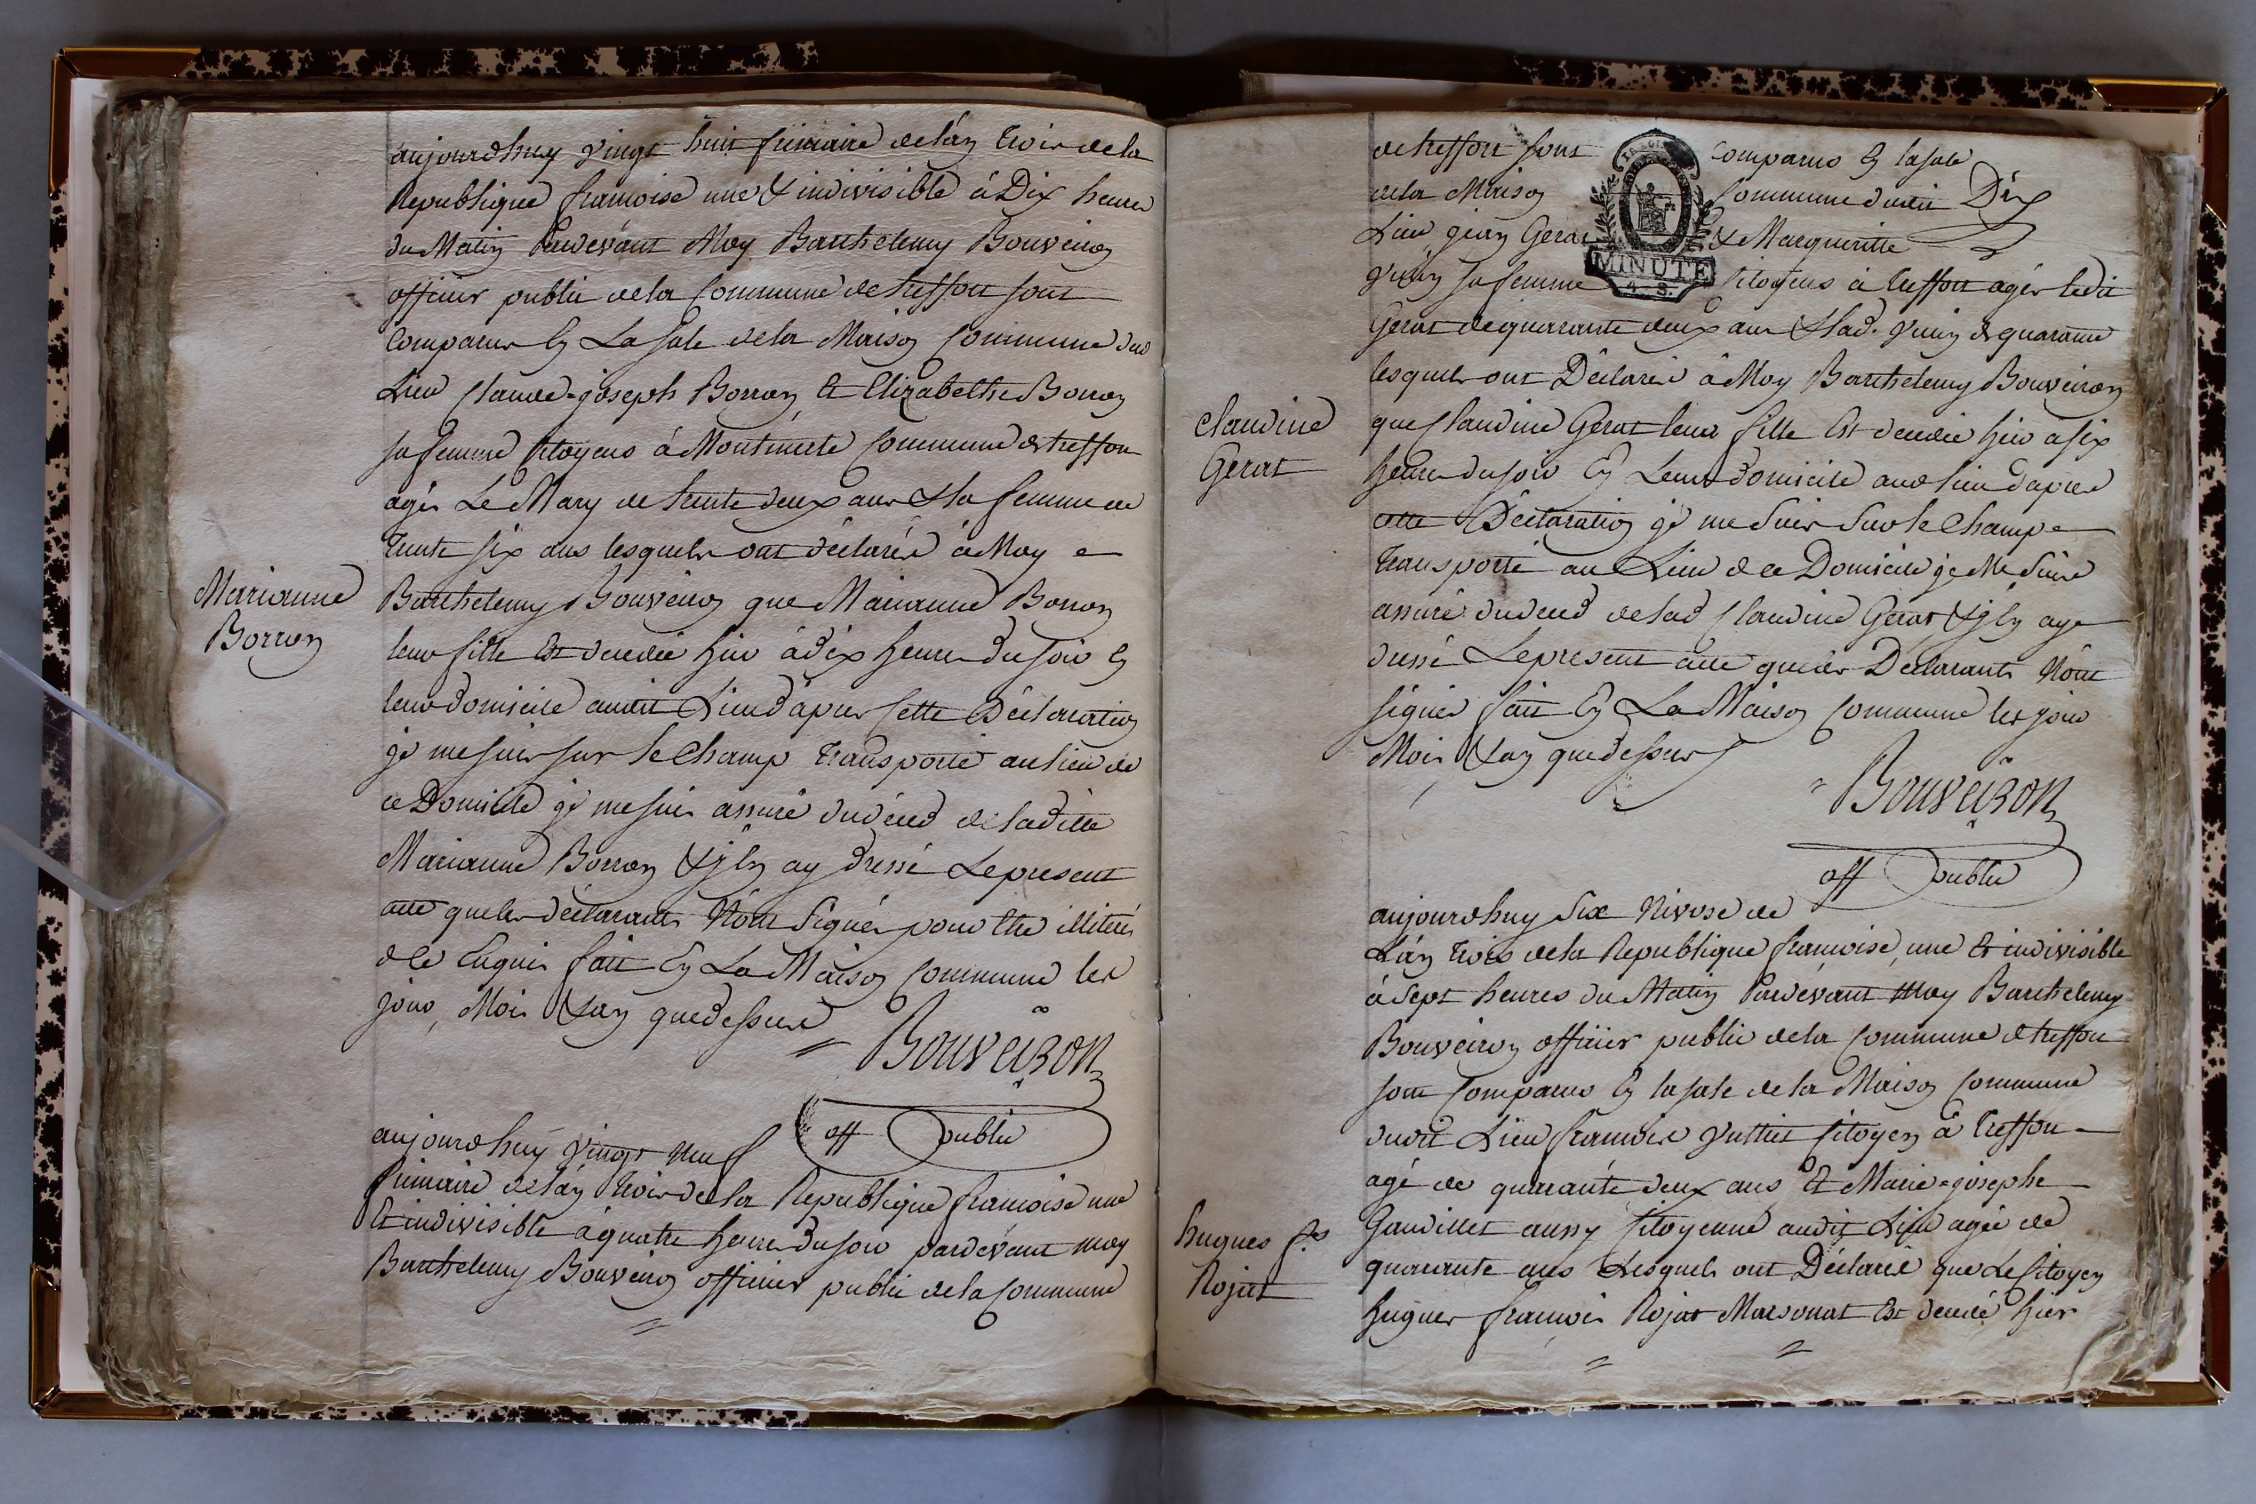 aujourdhuy vingt huit frimaire de lán trois de la
Republique francoise une & indivisible á Dix heures
du Matin Pardevant Moy Barthelemy Bouveiron
officier public de la Commune de treffort sont
Comparus En La Sale de la Maison Commune dud
Lieu Claude-joseph Borron Et Elizabethe Borron
sa femme Citoyens á Montmerle Commune de treffort
agés Le Mary de trente deux ans & la femme de
trente six ans lesquels ont déclarés á Moy
Marianne
Borron
Barthelemy Bouveiron que Marianne Borron
leur fille Est decedée hier á dix heures du soir En
leur domicile audit Lieu d'aprés Cette Déclaration
je me suis sur le Champ transporté au lieu de
ce Domicile je me suis assuré du décéd de la ditte
Marianne Borron & j'En ay dressé Le present
acte que les déclarants N'ont Signés pour étre illiterés
de ce Enquis fait En La Maison Commune les
jour, Mois & an que dessus
Bouveiron
off public
aujourdhuy vingt neuf
frimaire de lán trois de la Republique francoise une
Et indivisible á quatre heures du soir pardevant moy
Barthelemy Bouveiron officier public de la Commune
de treffort sont Comparus En la sale
de la Maison Commune dudit Dix
Lieu jean Gerat & Marguerite
femme MINUTE Citoyens á treffort agés ledit
4. S.
Gerat de quarante deux ans & lad. de quarante
lesquels ont Déclarés á Moy Barthelemy Bouveiron
Claudine
Gerat
que Claudine Gerat leur fille Est decedée hier a six
heures du soir En Leur domicile aud lieu d'aprés
cette Déclaration je me Suis Sur le Champ
transporté au Lieu de ce Domicile je Me Suis
assuré du deced de lad Claudine Gerat & j'En ay
dressé Le present acte que les Déclarants N'ont
signés fait En La Maison Commune les jour
Mois & an que dessus
Bouveiron
off public
aujourdhuy Six Nivose de
L'án trois de la Republique françoise, une Et indivisible
á Sept heures du Matin Pardevant moy Barthelemy
Bouveiron officier public de la Commune de treffort
sont Comparus En la sale de la Maison Commune
dudit Lieu francois Citoyen á treffort
agé de quarante deux ans Et Marie-josephe
hugues f.ois
Rojat
Gaudillet aussy Citoyenne audit Lieu agée de
quarante ans Lesquels ont Déclarés que Le Citoyen
hugues francois Rojat Marsonat Est decedé hier